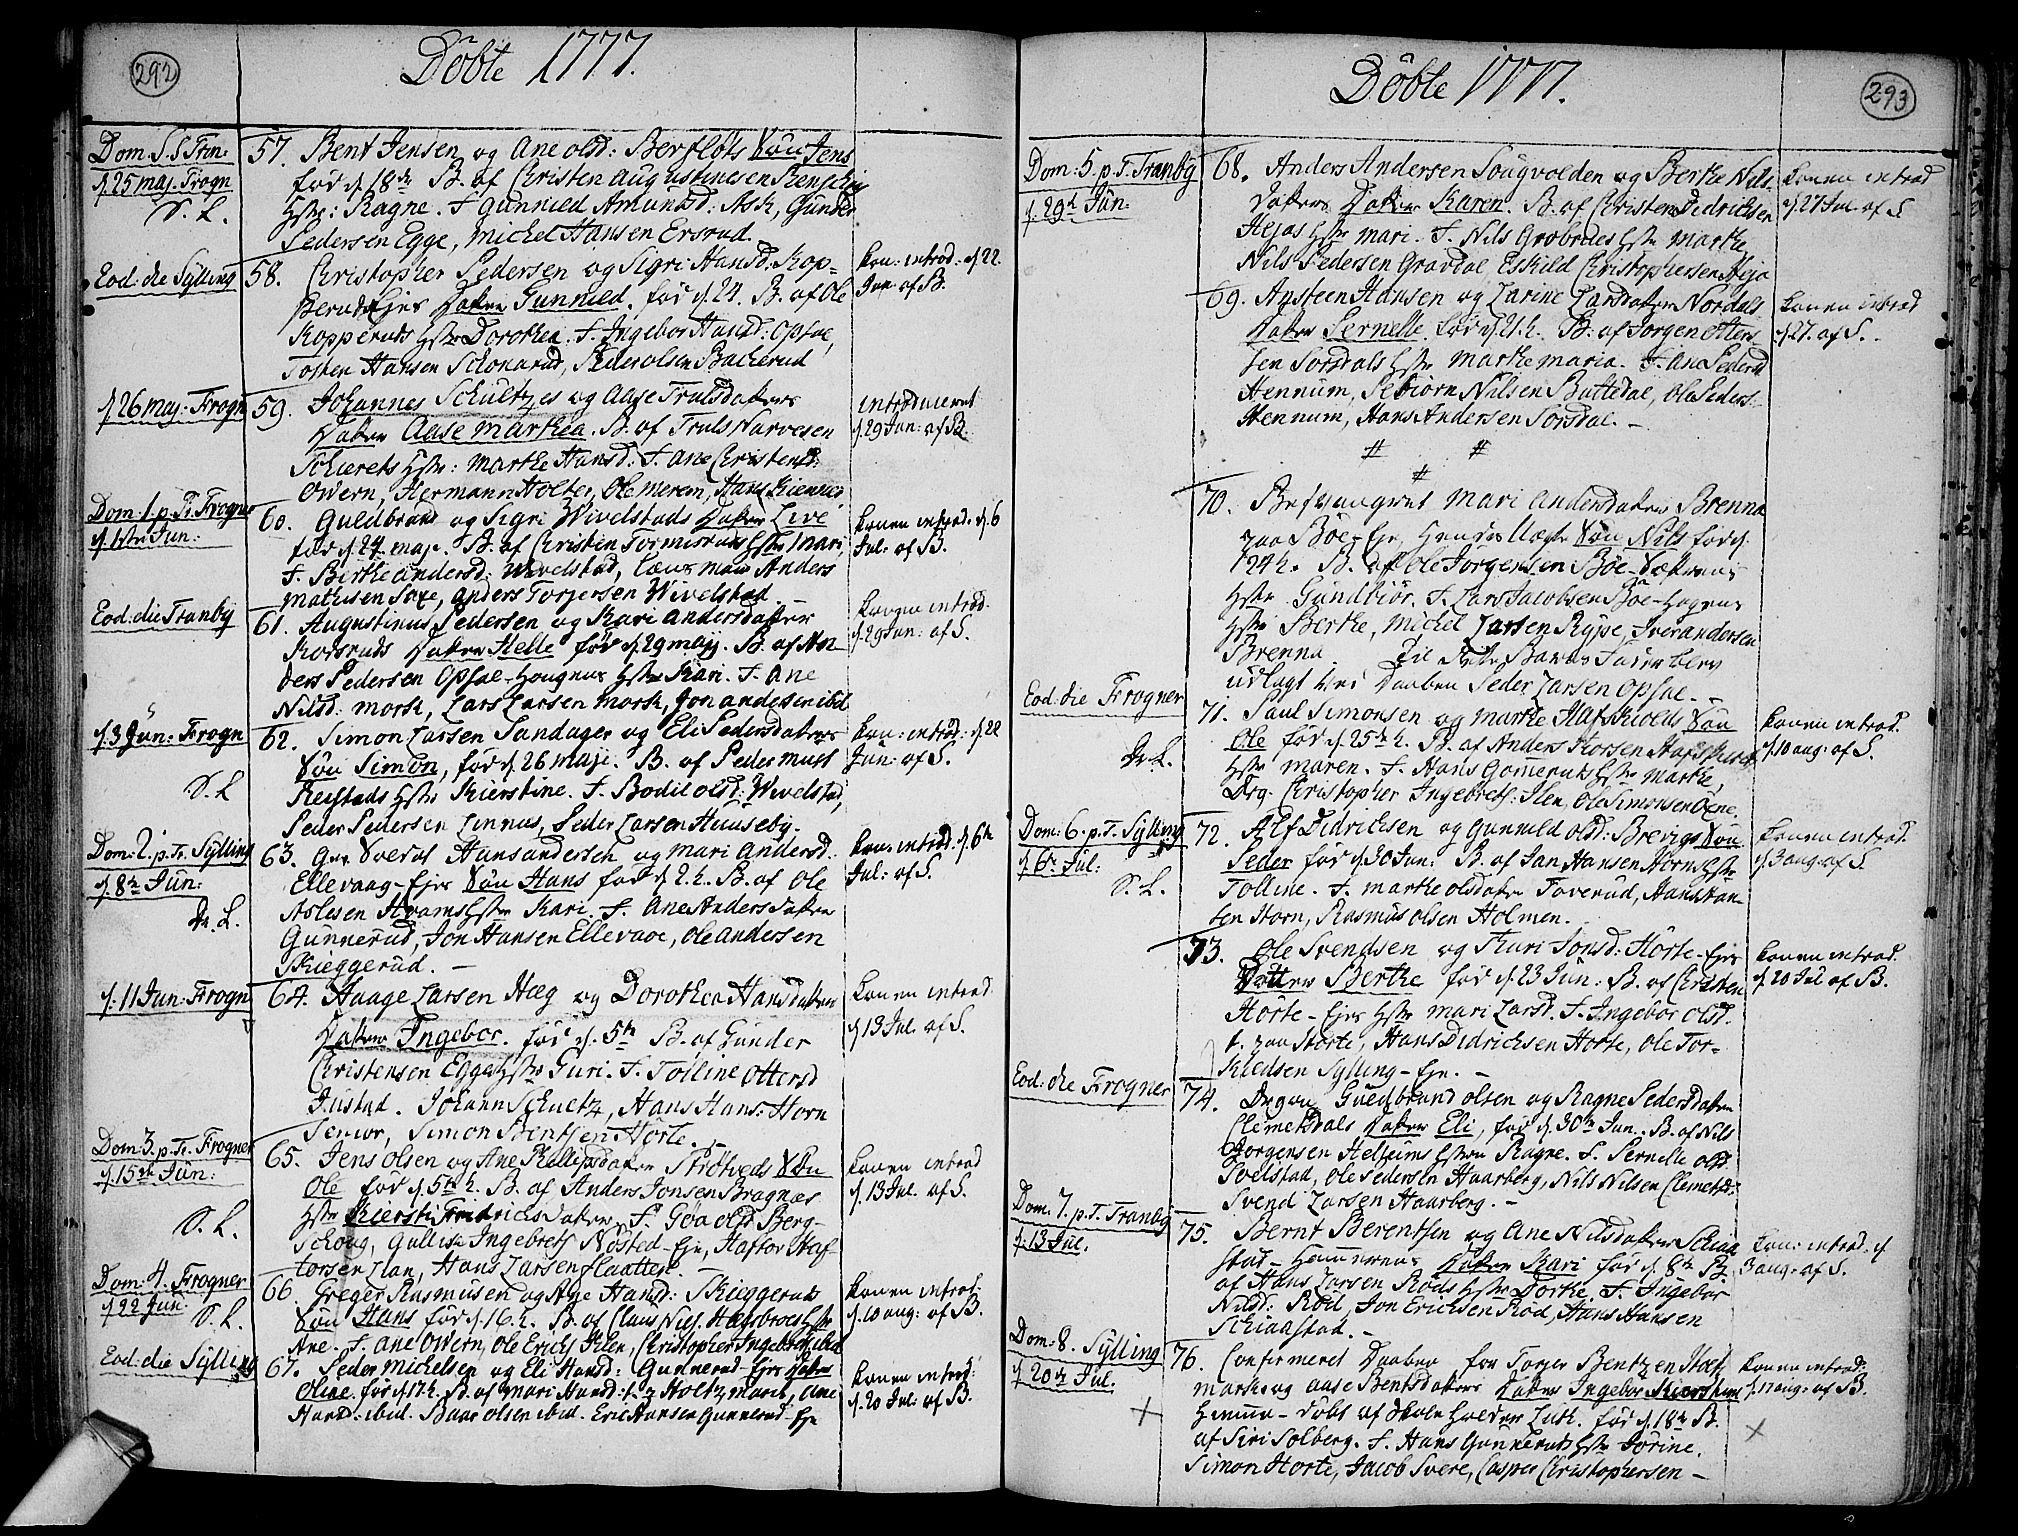 292
Döbte 1777.
Dom. S. S. Trin:
d. 25 maj. Frogn
S. L.
57. Bent Jensen og Ane olsd: Berfløts Søn Jens
før d. 18de B. af Christen Augustinesen
Hstr: Ragne. F. Gunnild Amunsd: Ask, Gunder
Pedersen Egge, Michel Hansen Ersrud.
Eod: die Sylling
58. Christopher Pedersen og Sigri Hansd: Kop-
Ejes Datter Gunnild, før d. 24. B. af Ole
Kopperuds Hstr Dorothea. F. Ingebor Hansd: Opsae,
Tosten Hansen Schonerud, Peder olsen Backerud
Kon: introd: d. 22
Jun: af B.
d. 26 maj. Frogn
59. Johannes Schultzes og Aase Trulsdatters
Datter Aase Marthea. B. af Truls Narvesen
Schierets Hstr: Marthe Hansd: F. Ane Christensd:
Owern, Hermann Holter, Ole Meren, Hans Kiennes
introduceret
d. 29 Jun: af B.
Dom. 1. p. Tr. Frogner
d. 1ste Jun:
60. Guldbrand og Sigri Wivelstads Datter Live
før d. 24 maji. B. af Christen Tormesruds Hstr Mari,
F. Birthe andersd: Wivelstad, Lens mand Anders
Mathisen Saxe, Anders Torjersen Wivelstad.
Konen introd. d. 6
Jul: af B.
Eod: die Tranby
61. Augustinus Pedersen og Kari Andersdatter
Rodsruds Datter Helle før d. 29 maji. B. af An
ders Pedersen Opsae-Hougens Hstr Kari. F. Ane
Nilsd: Morsk, Lars Larsen Morsk, Jon andesen ibid
Konen introd.
d. 29 Jun: af S.
d. 3 Jun: Frogn
S. L
62. Simon Larsen Sandager og Eli Pedersdatters
Søn Simon, før d. 26 maji. B. af Peder Muss
Reistads Hstr Kierstine. F. Bodil olsd: Wivelstad,
Peder Pedersen Linnus, Peder Larsen Huuseby.
Kon: introd: d. 22
Jun: af S.
Dom: 2. p. Tr. Sylling
d. 8de Jun:
Dr. L.
63. Hans andersen og Mari Andersd:
Ellevaag-Ejes Søn Hans før d. 2. h. B. af Ole
Aslesen Hvams Hstr Kari. F. Ane Anders Datter
Gunnerud, Jon Hansen Ellevaae, Ole andersen
Skieggerud. —
Kon: introd. d. 6te
Jul: af S.
d. 11 Jun: Frogn
64. Haage Larsen Hæg og Dorothea Hansdatters
Datter Ingebor. før d. 5te B. af Gunder
Christensen Egges Hstr Guri. F. Tolline Ottersd
Justad. Johann Schultz, Hans Hans: Horn
Senior, Simon Bentsen Horte. —
Konen introd
d. 13 Jul. af S.
Dom. 3. p. Tr. Frogner
d. 15de Jun:
S. L.
65. Jens olsen og Ane Kellisdatter Strøtveds Søn
Ole før d. 5te h. B. af Anders Jonsen Bragnæs
Hstr Kiersti Fridrics Datter. F. Gøa olsd Berg-
Schoug, Gullik Ingebrets Nøsted-Eje, Haftor Haf
torsen Lian, Hans Larsen Flaatten.
Konen introd
d. 13 Jul. af S.
Dom: 4. Frogner
d. 22 Jun:
S. L.
66. Greger Rasmusen og Aje Hansd: Skieggeruds
Søn Hans før d. 16. h. B. af Claus Niels. Hassbroes Hstr
Ane. F. Ane Owern, Ole Erichs Ihlen, Christopher Ingebrets. ibid
Konen introd:
d. 10 aug: af B.
Eod: die Sylling
67. Peder Michelsen og Eli Hansd: Gunnerud-Ejes Datter
Oline. før d. 17. h. B. af Mari Hansd: Holtzmarch, Ane
Hansd: ibid. Baar olsen ibid. Eric Hansen Gunnerud-Eje
Konen introd:
d. 20 Jul: af B.
293
Döbte 1777.
Dom: 5. p. T. Tranby
d. 29de Jun:
68. Anders Andersen Sougvolden og Berthe Nils
Datters Datter Karen. B. af Christen Didrichsen
Hejas Hstr Mari. F. Nils Grøbrdes Hstr Marthe
Nils Pedersen Gravdal, Eskild Christophersen Heja
Konen introd
d. 27 Jul. af S
69. Ansteen Hansen og Zarine Larsdatter Nordals
Datter Pernelle. før d. 21. h. B. af Jørgen Otter-
sen Sorsdals Hstr Marthe Maria. F. Ane Pedersd
Hennum, Sebiorn Nilsen Buttedal, Ole Peders.
Hennum, Hans Andersen Sorsdal. —
# #
#
Konen introd
d. 27. af S.
70. Besvangret Mari andersdatter Brenna
paa Böe-Eje, Hendes Uægte Søn Nils før d.
24 h. B. af Ole Jörgensen Böe-Sætrens
Hstr Gundbiör. F. Lars Jacobsen Böe-Hagens
Hstr Berthe, Michel Larsen Rype, Iver andersen
Brenna. Til dette Barns Fader blev
udlagt ved Daaben Peder Larsen Opsae. —
Eod: die Frogner
Dr. L.
71. Paul Simonsen og Marthe Hafskiolds Søn
Ole før d. 25de h. B. af Anders Thorsen Hafskiolds
Hstr Maren. F. Hans Gomeruds Hstr Marthe,
Drg. Christopher Ingebrets: Ilen, Ole Simonsen Oxne.
Konen introd.
d. 10 aug: af S.
Dom: 6. p. T. Sylling
d. 6te Jul:
S. L.
72. Alf Didricksen og Gunnild olsd: Brevigs Søn
Peder før d. 30 Jun: B. af Jan Hansen Horns Hstr
Tolline. F. Marthe olsdatter Toverud, Hans Han-
sen Horn, Rasmus olsen Holmen.
Konen introd.
d. 3 aug. af S
73. Ole Svendsen og Thuri Jonsd: Hörte-Ejes
Datter Berthe før d. 23 Jun: B. af Christen
Hörte-Ejes Hstr Mari Larsd. F. Ingebor olsd.
t. paa Horte, Hans Didrichsen Horte, Ole Tor-
kildsen Sylling-Eje. —
Konen introd.
d. 20 Jul af B.
Eod: die Frogner
74. Guldbrand olsen og Ragne Pedersdatter
Clemetsdals Datter Eli, før d. 30te Jun. B. af Nils
Jorgensen Helseims Hstr Ragne. F. Pernille olsd
Svelstad, Ole Pedersen Haarberg, Nils Nilsen Clemetsd:
Svend Larsen Haarberg. —
Dom: 7. p. T. Tranby
d. 13 Jul.
75. Bernt Berentsen og Ane Nilsdatter Schiaa
stad-Hammerens Datter Kari før d. 8de B.
af Hans Larsen Røds Hstr Dorthe. F. Ingebor
Nilsd: Röd, Jon Erichsen Röd, Hans Hansen
Schiaastad. —
Kon: introd: d.
3 aug: af S.
Dom: 8. Sylling
d. 20de Jul:
+
76. Confirmeret Daaben for Torger Bentzen Holtz
marks og Aase Bentsdatters Datter Ingebor Kierstine
Hjemme-döbt af Skoleholder Luth. før d. 18de B.
af Siri Solberg. F. Hans Gunneruds Hstr Jörine.
Simon Horte, Jacob Svere, Casper Christophersen —
Konen introd:
d. 17 aug: af B.
+